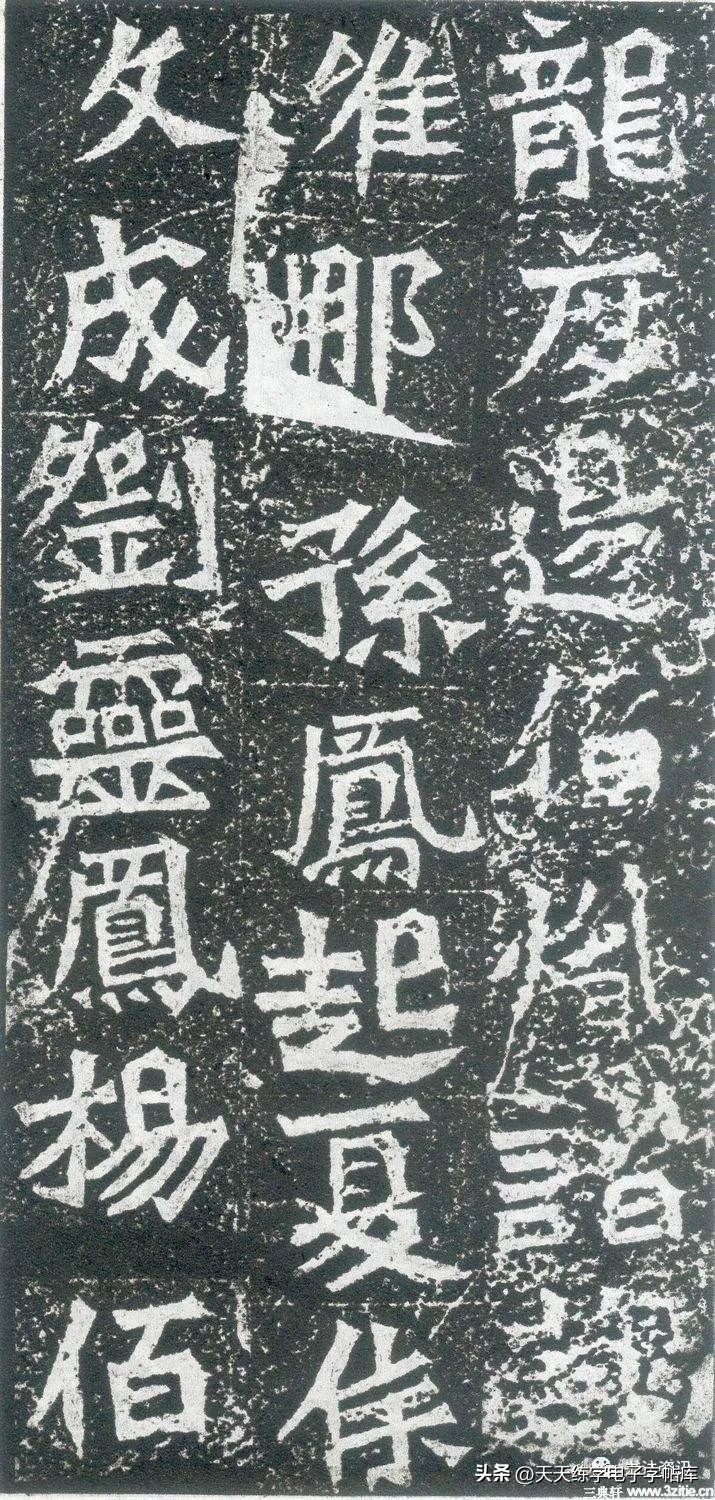 龍度邊伯諮
惟那孫鳳起夏侯
文成劉靈鳳楊佰
头条 @天天练字电子字帖库
三典轩 www.3zitie.cn